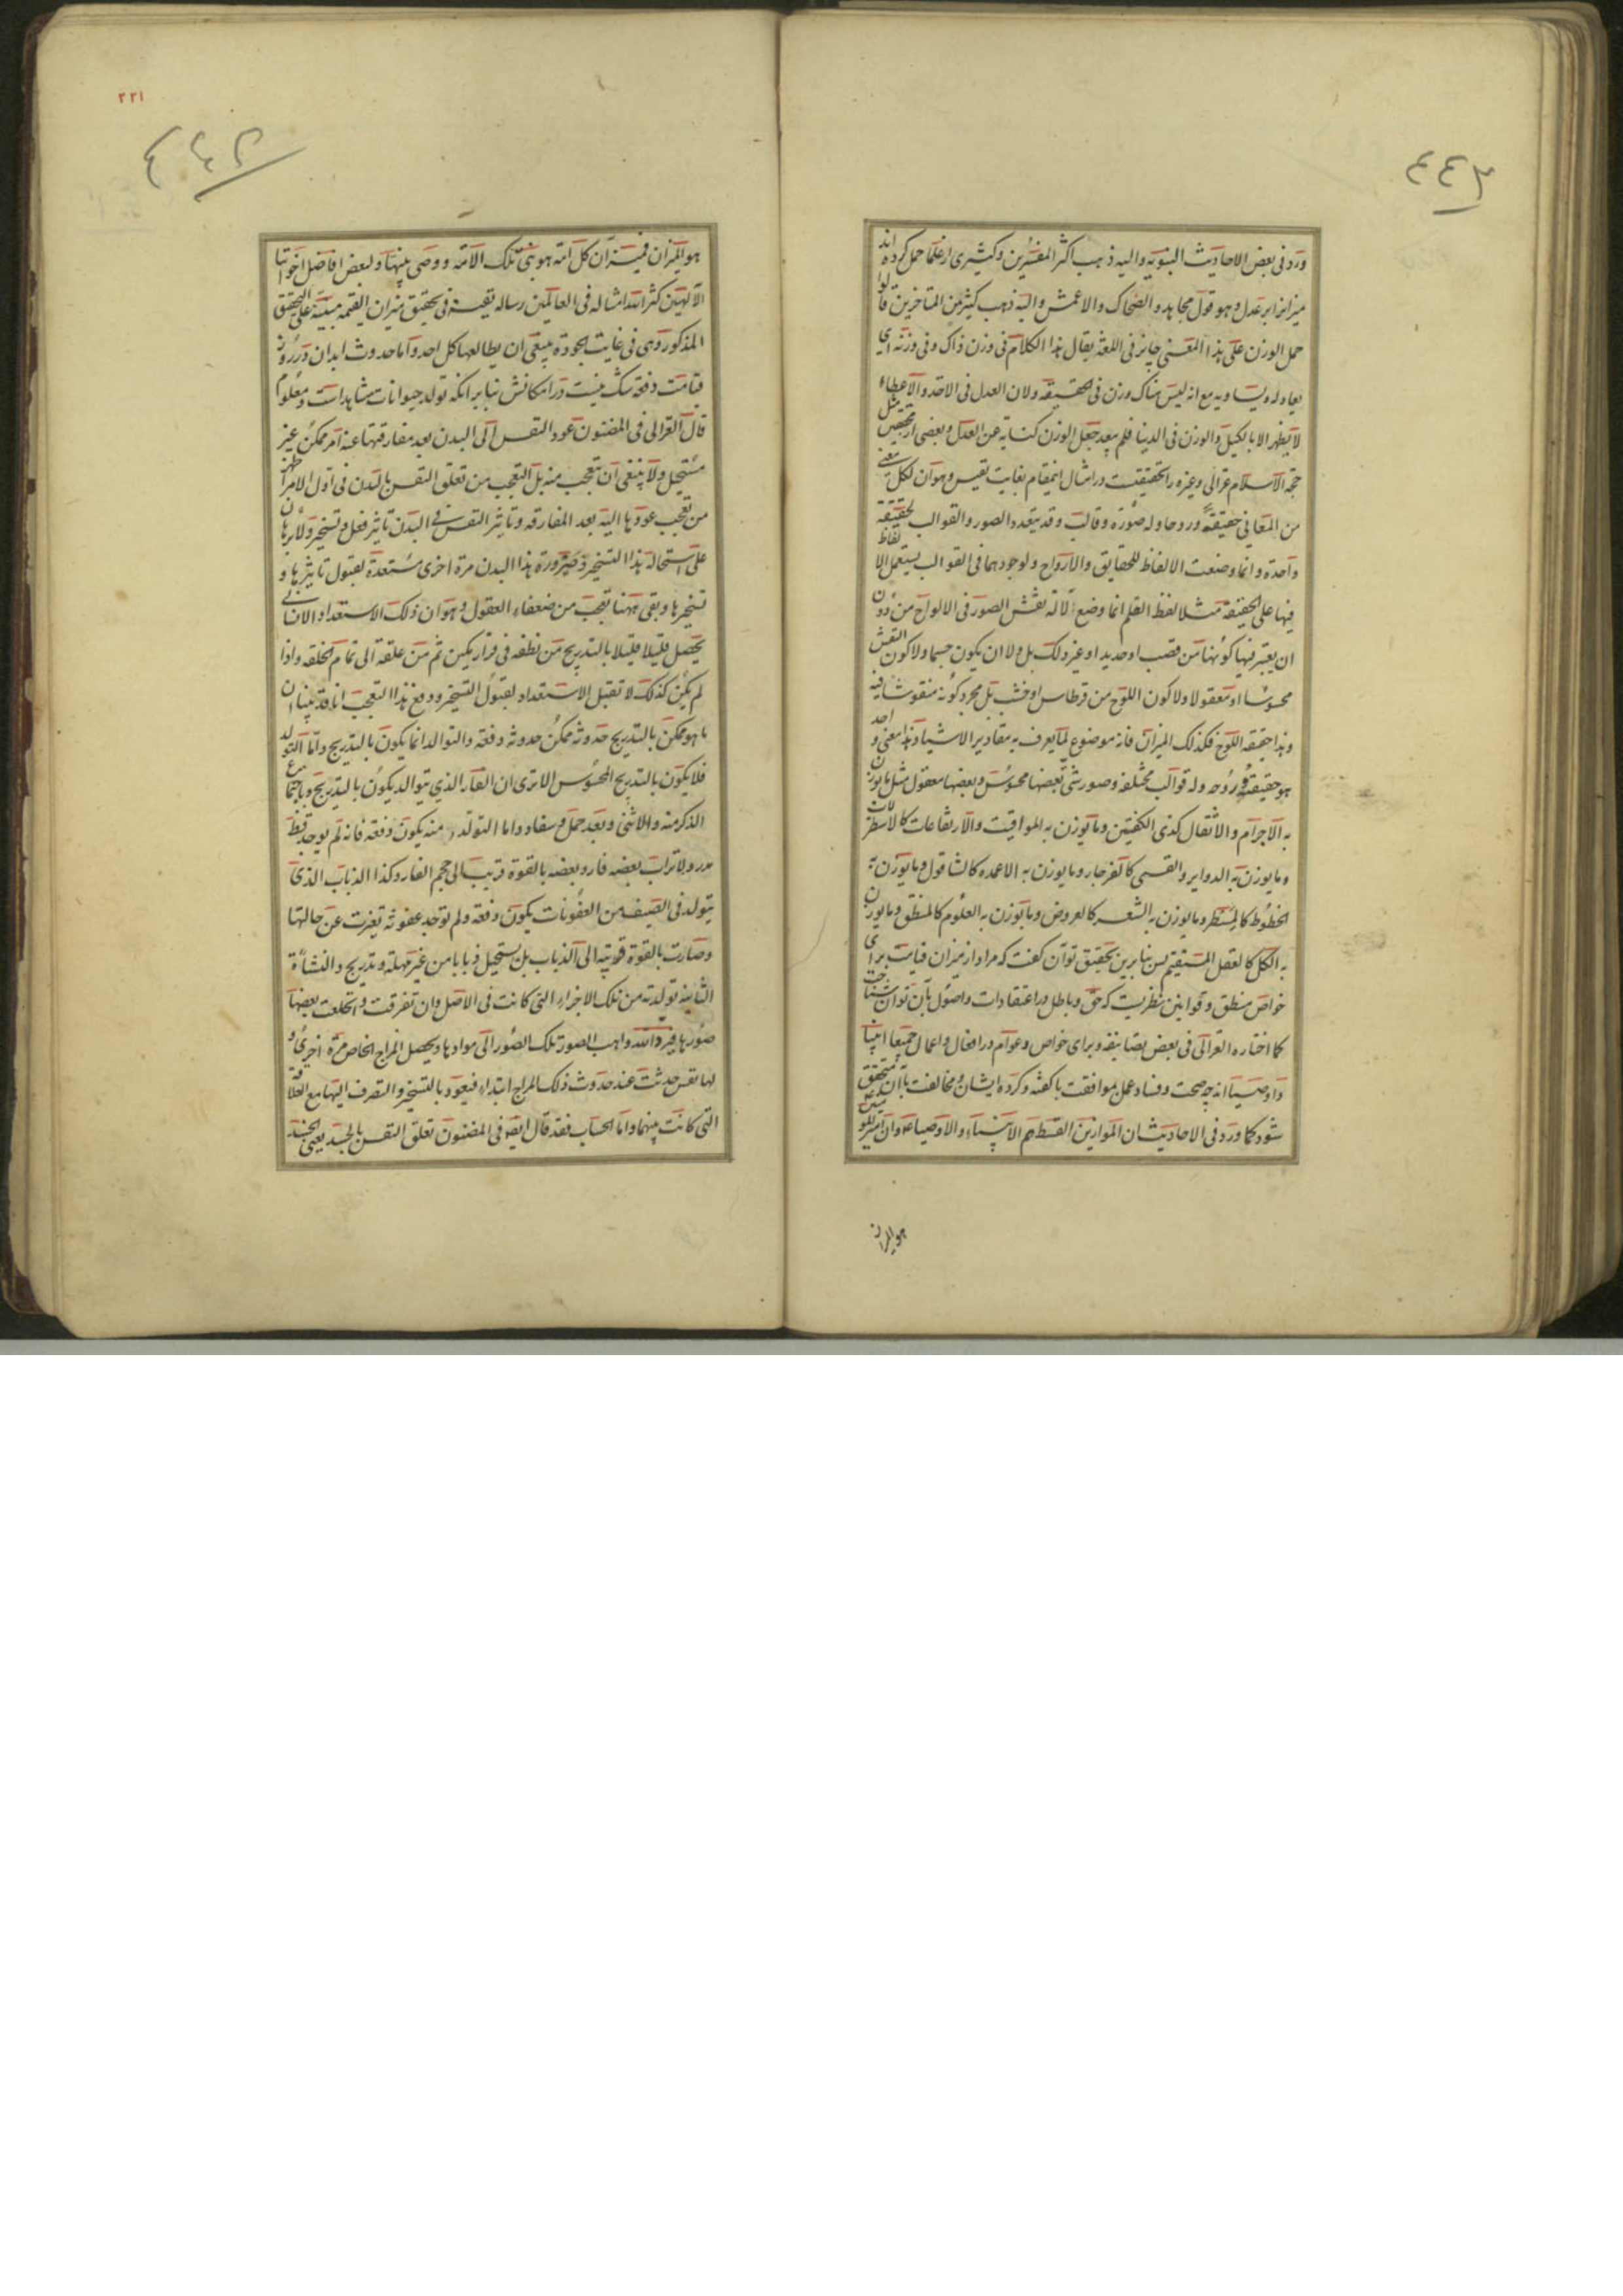 ٤٤٢
ورد فی بعض الاحادیث النبویه والیه ذهب اکثر المفسرین وکثیری از علما حمل کرده اند
میزانرا بر عدل وهو قول مجاهد والضحاک والاعمش والیه ذهب کثیر من المتاخرین قالوا
حمل الوزن علی هذا المعنی جایز فی اللغة یقال هذا الکلام فی وزن ذاک وفی وزنه ای
یعادله ویساویه مع انه لیس هناک وزن فی الحقیقه ولان العدل فی الاخذ والاعطاء
لا یظهر الا بالکیل والوزن فی الدنیا فلم یبعد جعل الوزن کنایه عن العدل وبعضی از محققین مثل
حجة الاسلام غزالی وغیره را تحقیقیست در امثال اینمقام بغایت نفیس وهو ان لکل معنی
من المعانی حقیقة وروحا وله صورة وقالب وقد یتعدد الصور والقوالب لحقیقة
واحدة وانما وضعت الالفاظ للحقایق والارواح ولوجودهما فی القوالب یستعمل الالفاظ
فیها علی الحقیقة مثلا لفظ القلم انما وضع لآلة نقش الصور فی الالواح من دون
ان یعتبر فیها کونها من قصب او حدید او غیر ذلک بل ولا ان یکون جسما ولا کون النقش
محسوسا او معقولا ولا کون اللوح من قرطاس او خشب بل مجرد کونه منقوشا فیه
وهذا حقیقة اللوح فکذلک المیزان فانه موضوع لما یعرف به مقادیر الاشیاء وهذا معنی واحد
هو حقیقته وروحه وله قوالب مختلفه وصور شتی بعضها محسوس وبعضها معقول مثل ما یوزن
به الاجرام والاثقال کذی الکفتین وما یوزن به المواقیت والارتفاعات کالاسطرلاب
وما یوزن به الدوایر والقسی کالفرجار وما یوزن به الاعمده کالشاقول وما یوزن به
الخطوط کالمسطر وما یوزن به الشعر کالعروض وما یوزن به العلوم کالمنطق وما یوزن
به الکل کالعقل المستقیم پس بنابرین تحقیق توان گفت که مراد از میزان قیامت برای
خواص منطق وقوانین نظریست که حق وباطل در اعتقادات واصول بآن توان شناخت
کما اختاره الغزالی فی بعض تصانیفه وبرای خواص وعوام در افعال واعمال جمیعا انبیا
واوصیا اند چه صحت وفساد عمل بموافقت با گفته وکرده ایشان ومخالفت بآن متحقق
شود کما ورد فی الاحادیث ان الموازین القسط هم الانبیاء والاوصیاء وان امیر المومنین
هو المیزان
٢٢١
هو المیزان فمیزان کل امة هو نبی تلک الامة ووصی نبیها ولبعض افاضل اخواننا
الالهیین کثر الله امثاله فی العالمین رساله نفیسة فی تحقیق میزان القیمه مبینة علی التحقیق
المذکور وهی فی غایت الجودة ینبغی ان یطالعها کل احد واما حدوث ابدان در روز
قیامت دفعة شک نیست در امکانش بنا بر آنکه تولد حیوانات مشاهد است ومعلوم
قال الغزالی فی المضنون عود النفس الی البدن بعد مفارقتها عنه امر ممکن غیر
مستحیل ولا ینبغی ان یتعجب منه بل التعجب من تعلق النفس بالبدن فی اول الامر اظهر
من تعجب عودها الیه بعد المفارقه وتاثیر النفس فی البدن تاثیر فعل وتسخیر ولا برهان
علی استحالة هذا التسخیر وصیرورة هذا البدن مرة اخری مستعدة لقبول تاثیرها و
تسخیرها وبقی ههنا تعجب من ضعفاء العقول وهو ان ذلک الاستعداد الانسانی
یحصل قلیلا قلیلا بالتدریج من نطفة فی قرار مکین ثم من علقة الی تمام الخلقه واذا
لم یکن کذلک لا تقبل الاستعداد لقبول التسخیر ودفع هذا التعجب انا قد بینا ان
ما هو ممکن بالتدریج حدوثه ممکن حدوثه دفعة والتوالد انما یکون بالتدریج واما التولد
فلا یکون بالتدریج المحسوس الا تری ان الفار الذی یتوالد یکون بالتدریج وباجتماع
الذکر منه والانثی وبعد حمل وسفاد واما التولد منه یکون دفعة فانه لم یوجد قط
مدر ولا تراب بعضه فار وبعضه بالقوة قریب الی حجم الفار وکذا الذباب الذی
یتولد فی الصیف من العفونات یکون دفعة ولم توجد عفونة تغیرت عن حالتها
وصارت بالقوة قریبه الی الذباب بل یستحیل ذبابا من غیر مهلة وتدریج والنشاءة
الثانیة تولدت من تلک الاجزاء التی کانت فی الاصل وان تفرقت وانخلعت بعضها
صورها فیرد الله واهب الصور تلک الصور الی موادها ویحصل المزاج الخاص مرة اخری و
لها نفس حدثت عند حدوث ذلک المزاج ابتداء فیعود بالتسخیر والتصرف الیها مع العلاقة
التی کانت بینهما واما الحساب فقد قال ایضا فی المضنون تعلق النفس بالجسد یعنی الجسد